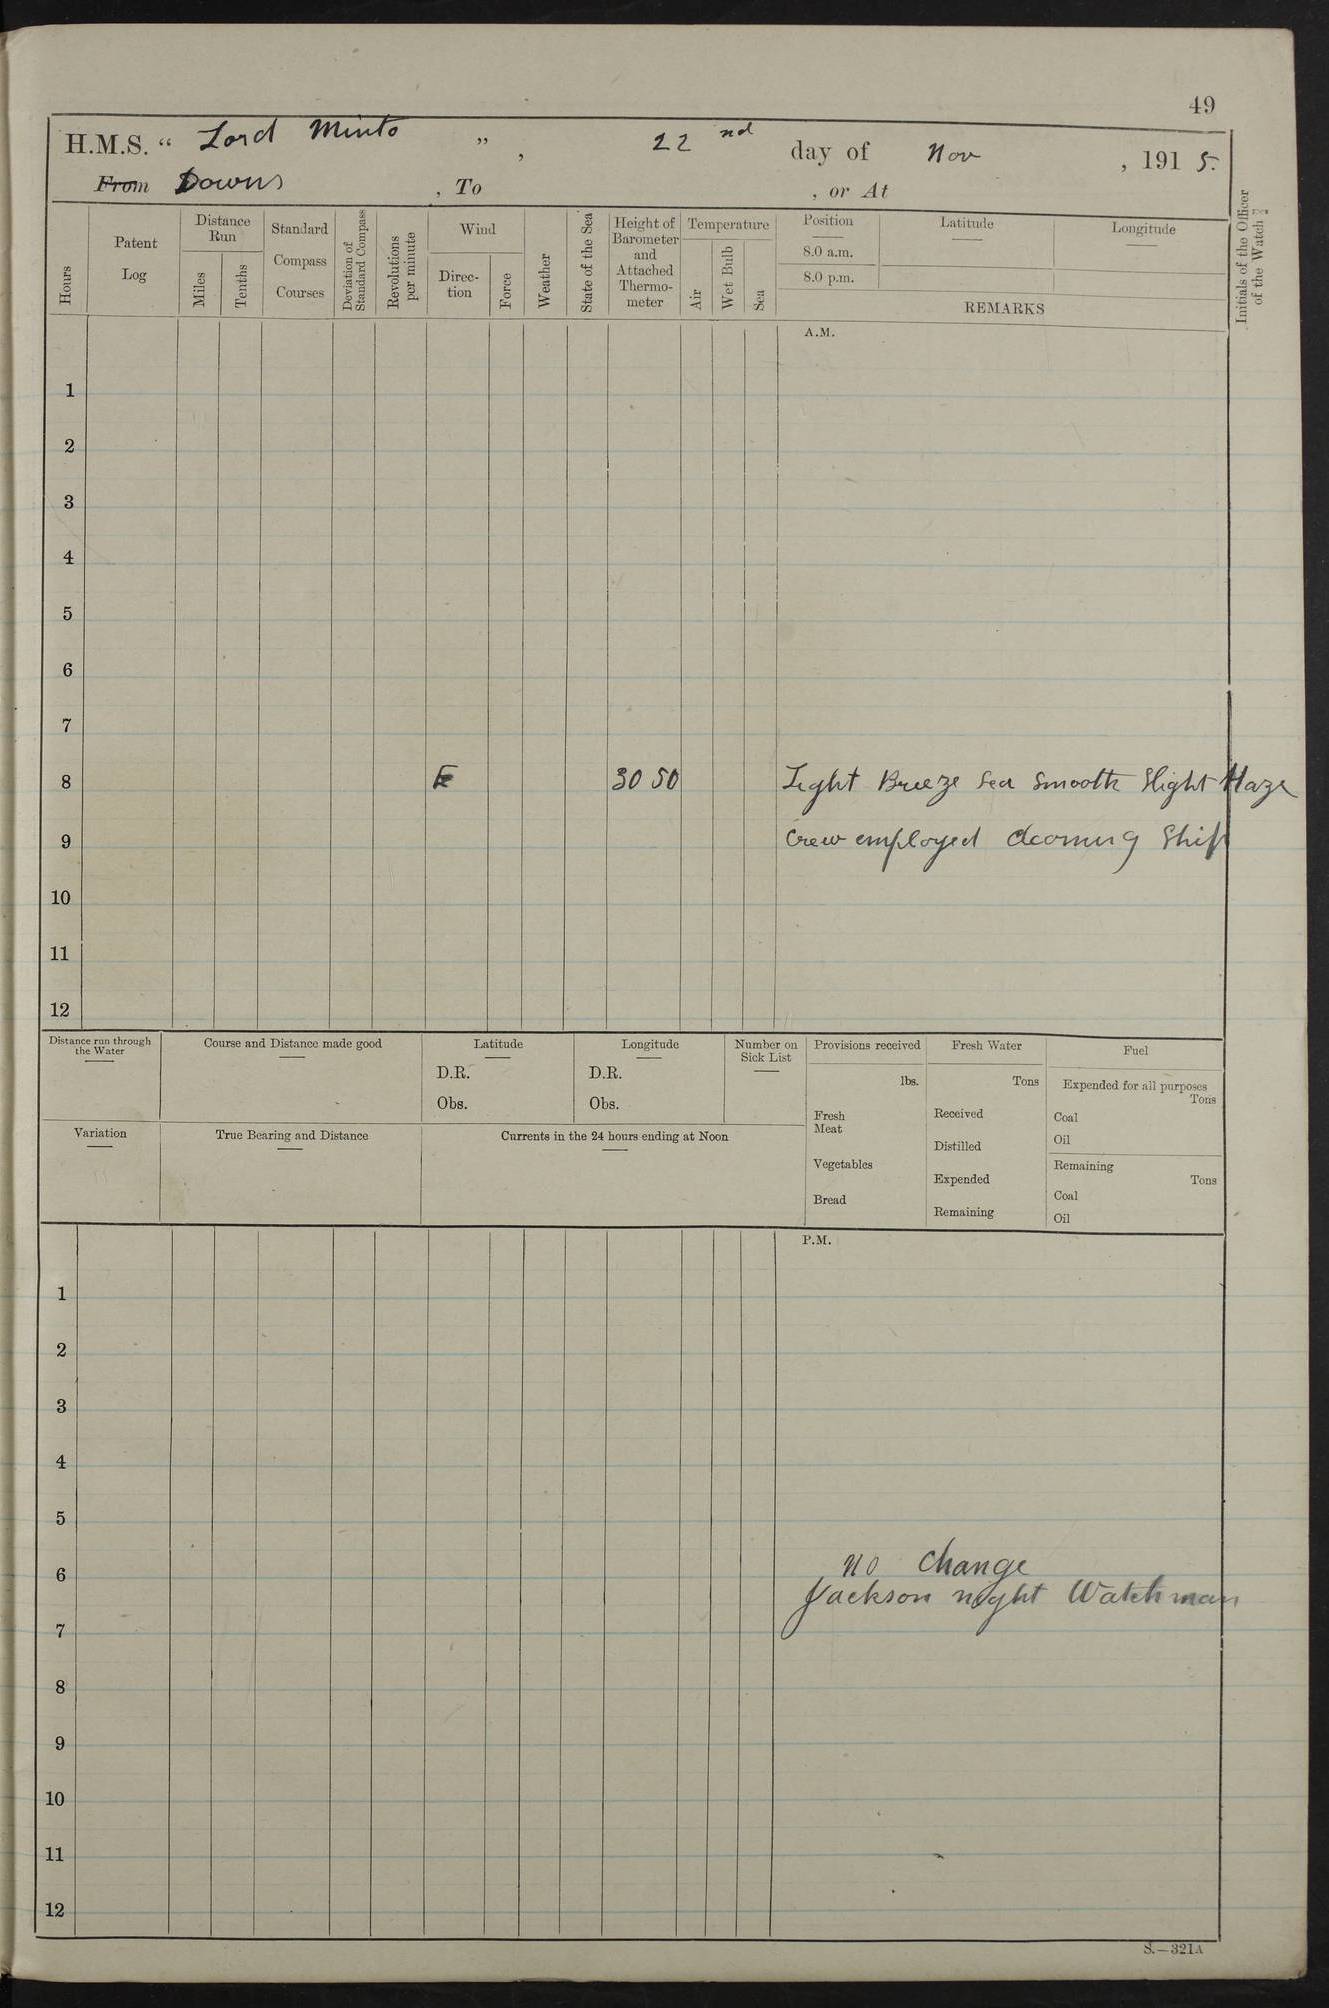 49
H.M.S. “ Lord Minto ” , 22nd day of Nov , 1915.
From Downs , To , or At
Hours
Patent Log
Distance Run
Miles
Tenths
Standard Compass Courses
Deviation of Standard Compass
Revolutions per minute
Wind
Direc-tion
Force
Weather
State of the Sea
Height of Barometer and Attached Thermo-meter
Temperature
Air
Wet Bulb
Sea
Position
8.0 a.m.
8.0 p.m.
Latitude
Longitude
REMARKS
Initials of the Officer of the Watch
A.M.
1
2
3
4
5
6
7
8 E 30 50 Light Breeze Sea Smooth Slight Haze
9 Crew employed Ship
10
11
12
Distance run through the Water
Course and Distance made good
Latitude
D.R.
Obs.
Longitude
D.R.
Obs.
Number on Sick List
Provisions received
lbs.
Fresh Meat
Vegetables
Bread
Fresh Water
Tons
Received
Distilled
Expended
Remaining
Fuel
Expended for all purposes
Tons
Coal
Oil
Remaining
Tons
Coal
Oil
Variation
True Bearing and Distance
Currents in the 24 hours ending at Noon
P.M.
1
2
3
4
5
6 no change
Jackson night Watchman
7
8
9
10
11
12
S.—321A